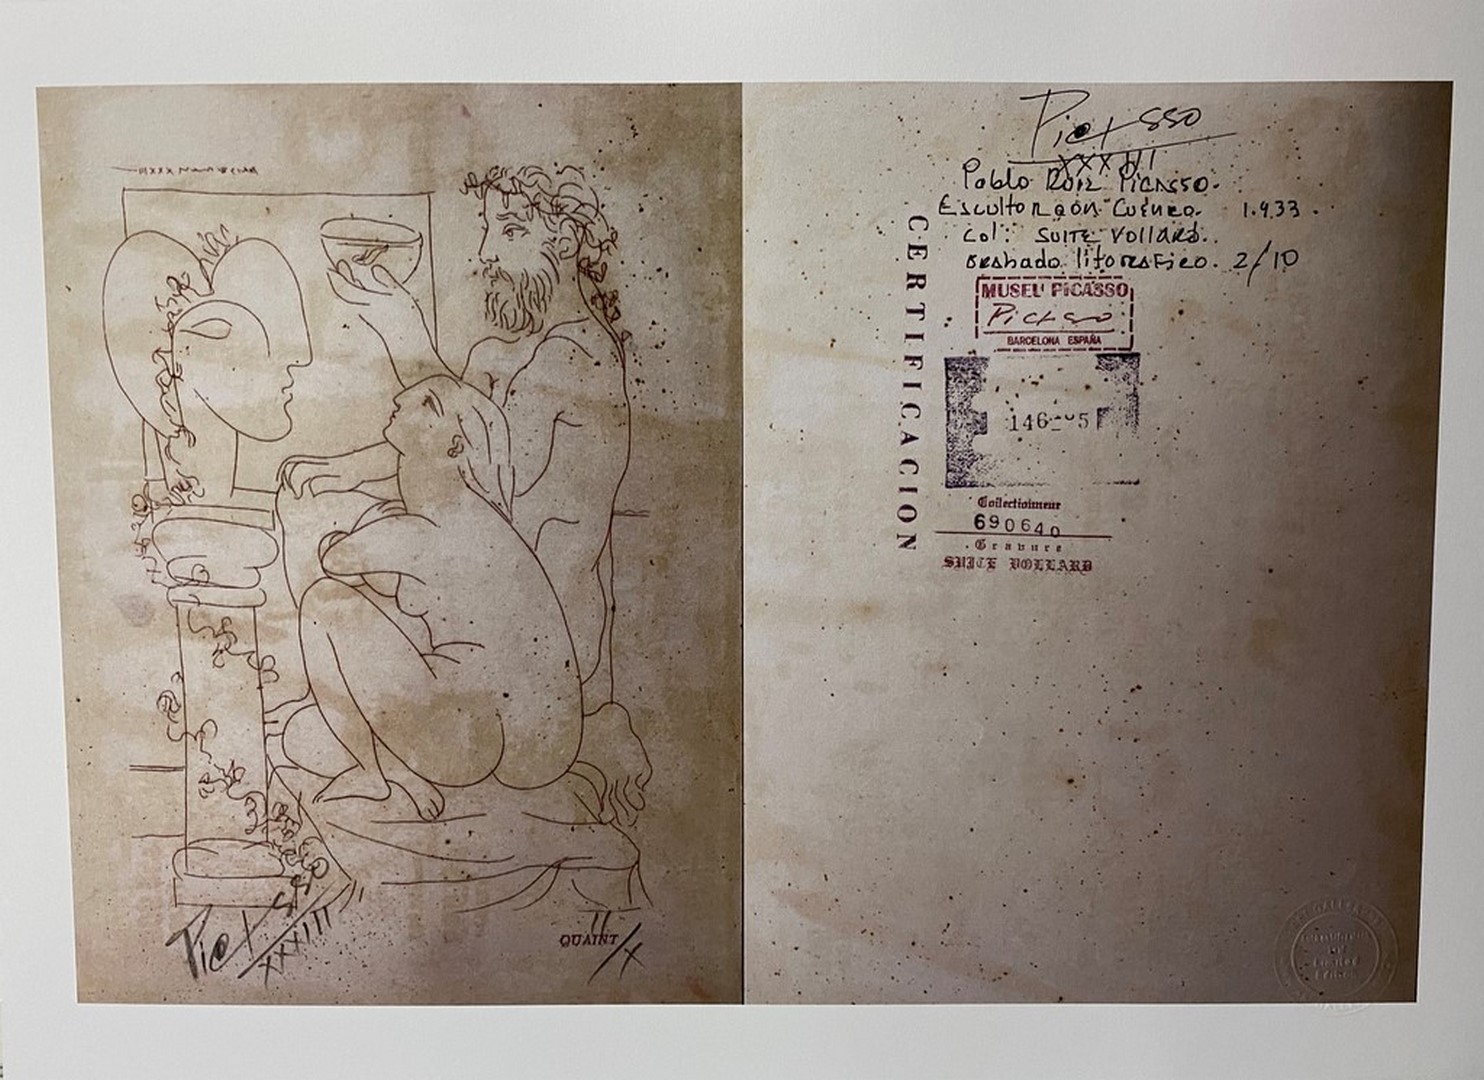 Picasso
XXXIII
QUAINT II/X
Picasso
XXXIII
Pablo Ruiz Picasso.
Escultor 1.4.33.
Col: SUITE Vollard.
2/10
CERTIFICACION
MUSEU PICASSO
Picasso
BARCELONA ESPAÑA
Collectionneur
690640
Gravure
SUITE VOLLARD